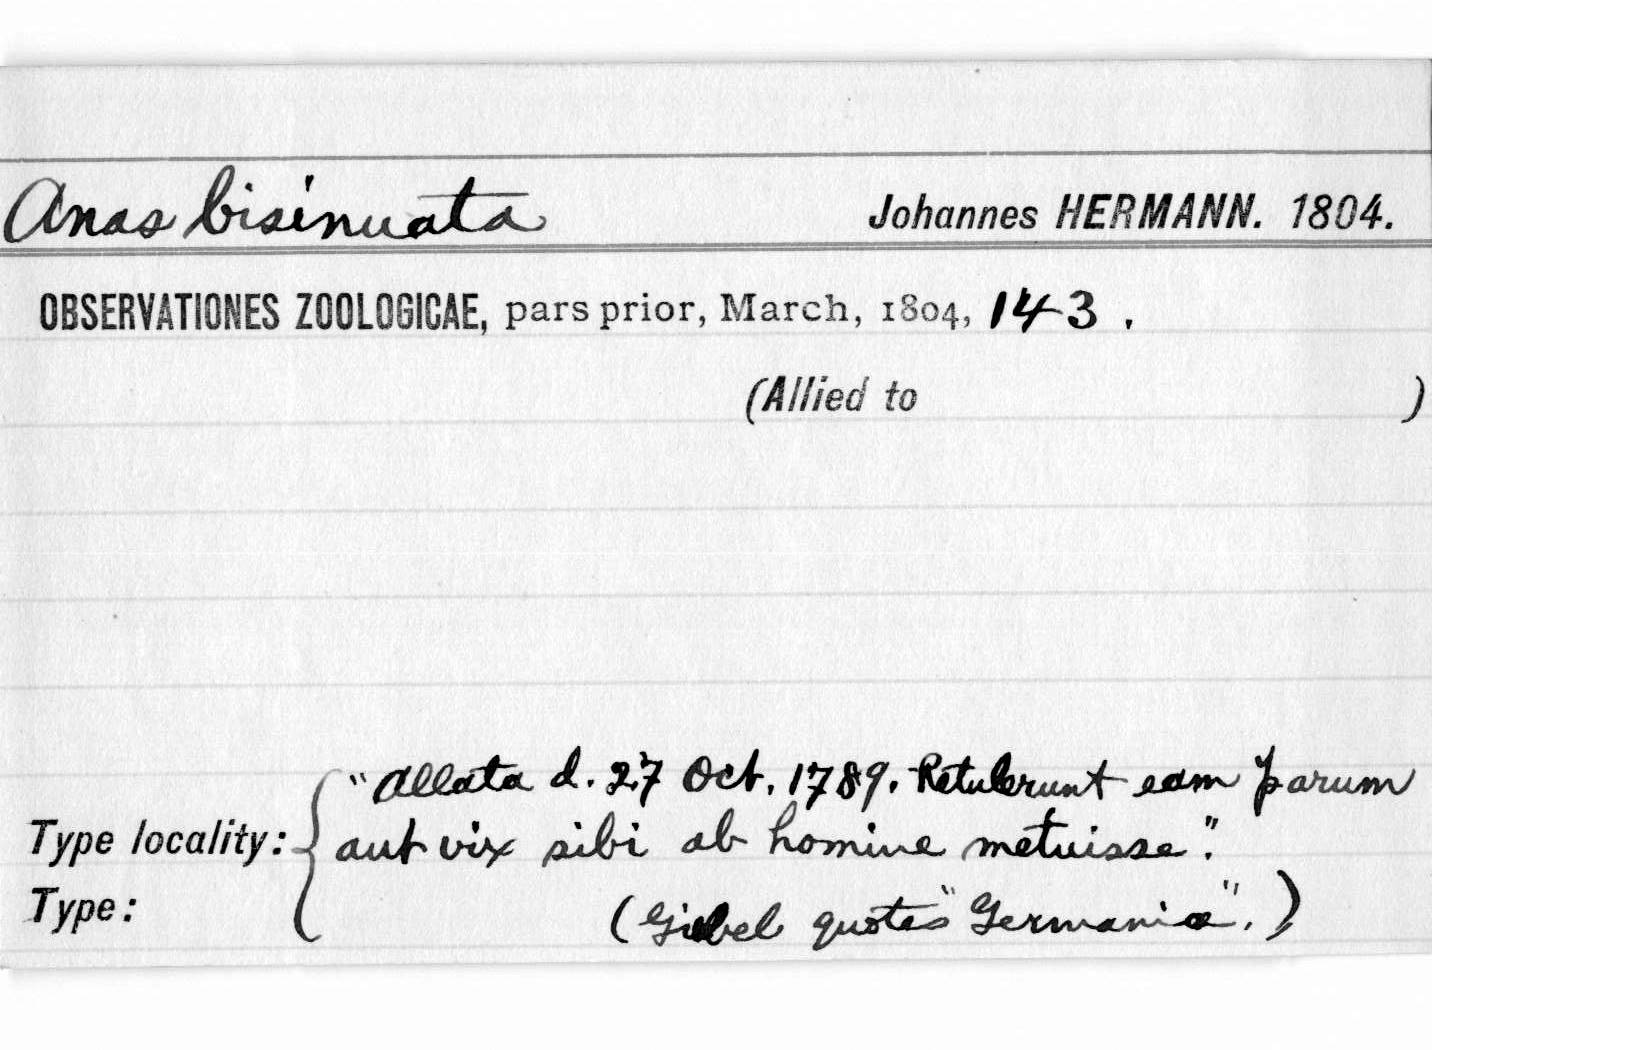 Anas bisinuata Johannes HERMANN. 1804.
OBSERVATIONES ZOOLOGICAE, pars prior, March, 1804, 143.
(Allied to )
"Allata d. 27 Oct. 1789. Retulerunt eam parum
Type locality: aut vix sibi ab homine metuisse".
Type: (Giebel quotes "Germania".)